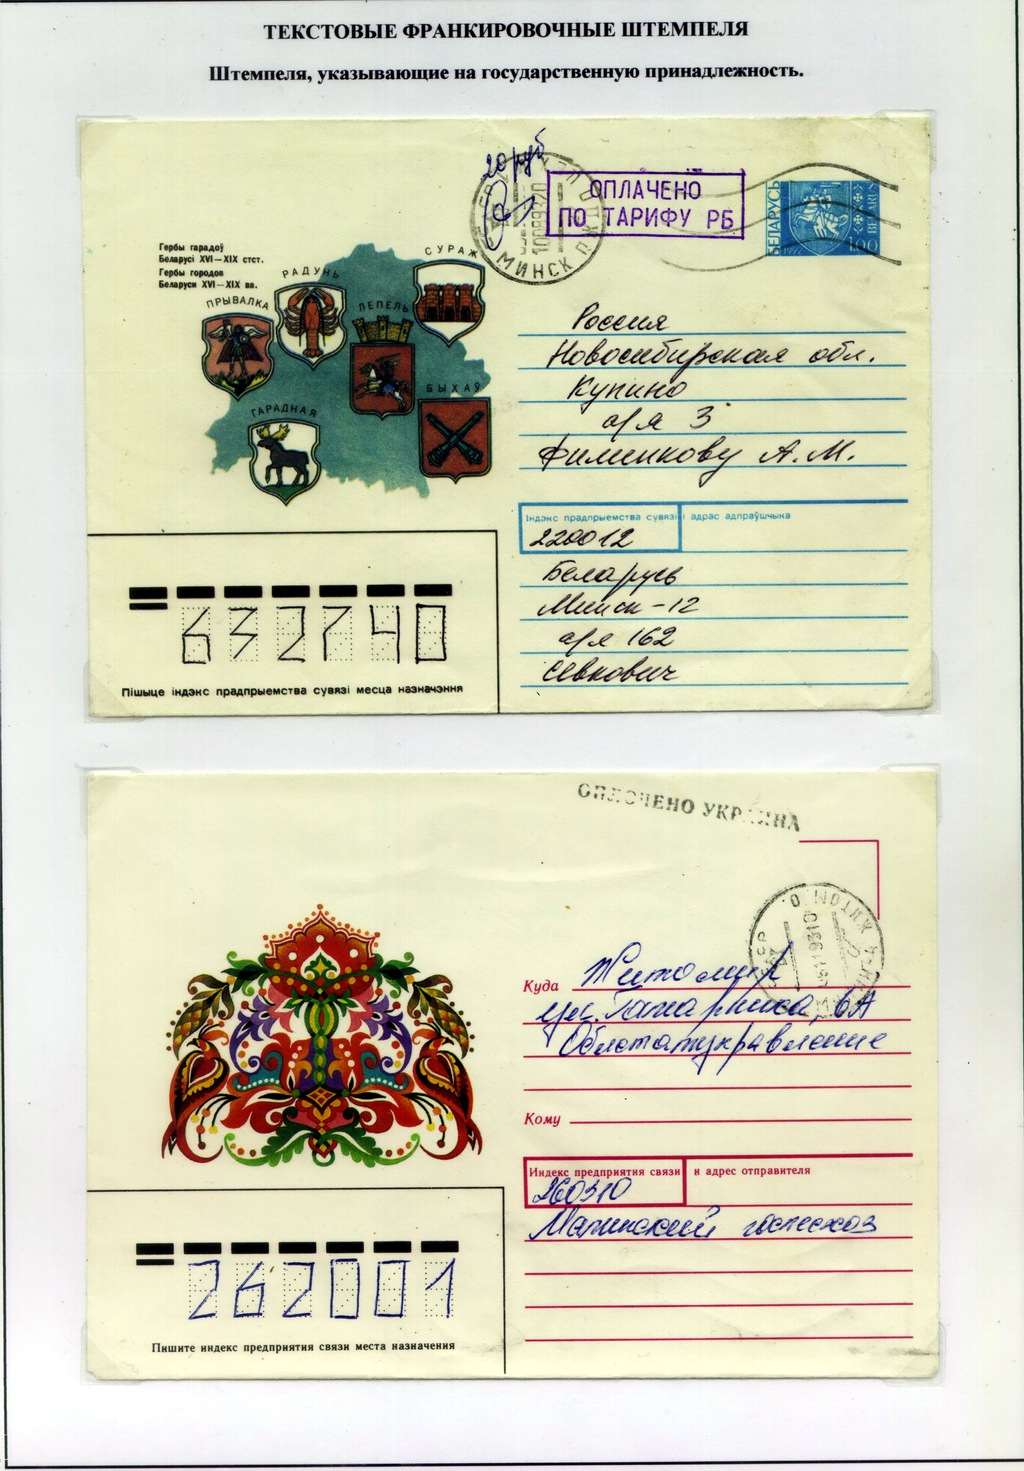 ТЕКСТОВЫЕ ФРАНКИРОВОЧНЫЕ ШТЕМПЕЛЯ
Штемпеля, указывающие на государственную принадлежность.
20 руб
ОПЛАЧЕНО
ПО ТАРИФУ РБ
МИНСК
БЕЛАРУСЬ
BELARUS
1992
100
Гербы гарадоў
Беларусі XVI–XIX стст.
Гербы городов
Беларуси XVI–XIX вв.
СУРАЖ
РАДУНЬ
ПРЫВАЛКА
ЛЕПЕЛЬ
БЫХАЎ
ГАРАДНАЯ
Россия
Новосибирская обл.
Купино
а/я 3
Филенкову А.М.
Індэкс прадпрыемства сувязі і адрас адпраўшчыка
220012
Беларусь
Минск-12
а/я 162
Севкович
632740
Пішыце індэкс прадпрыемства сувязі месца назначэння
ОПЛОЧЕНО УКРАИНА
Куда Житомир
ул. Гагарина, 6А
Облстатуправление
Кому
Индекс предприятия связи и адрес отправителя
260310
Малинский гослесхоз
262001
Пишите индекс предприятия связи места назначения